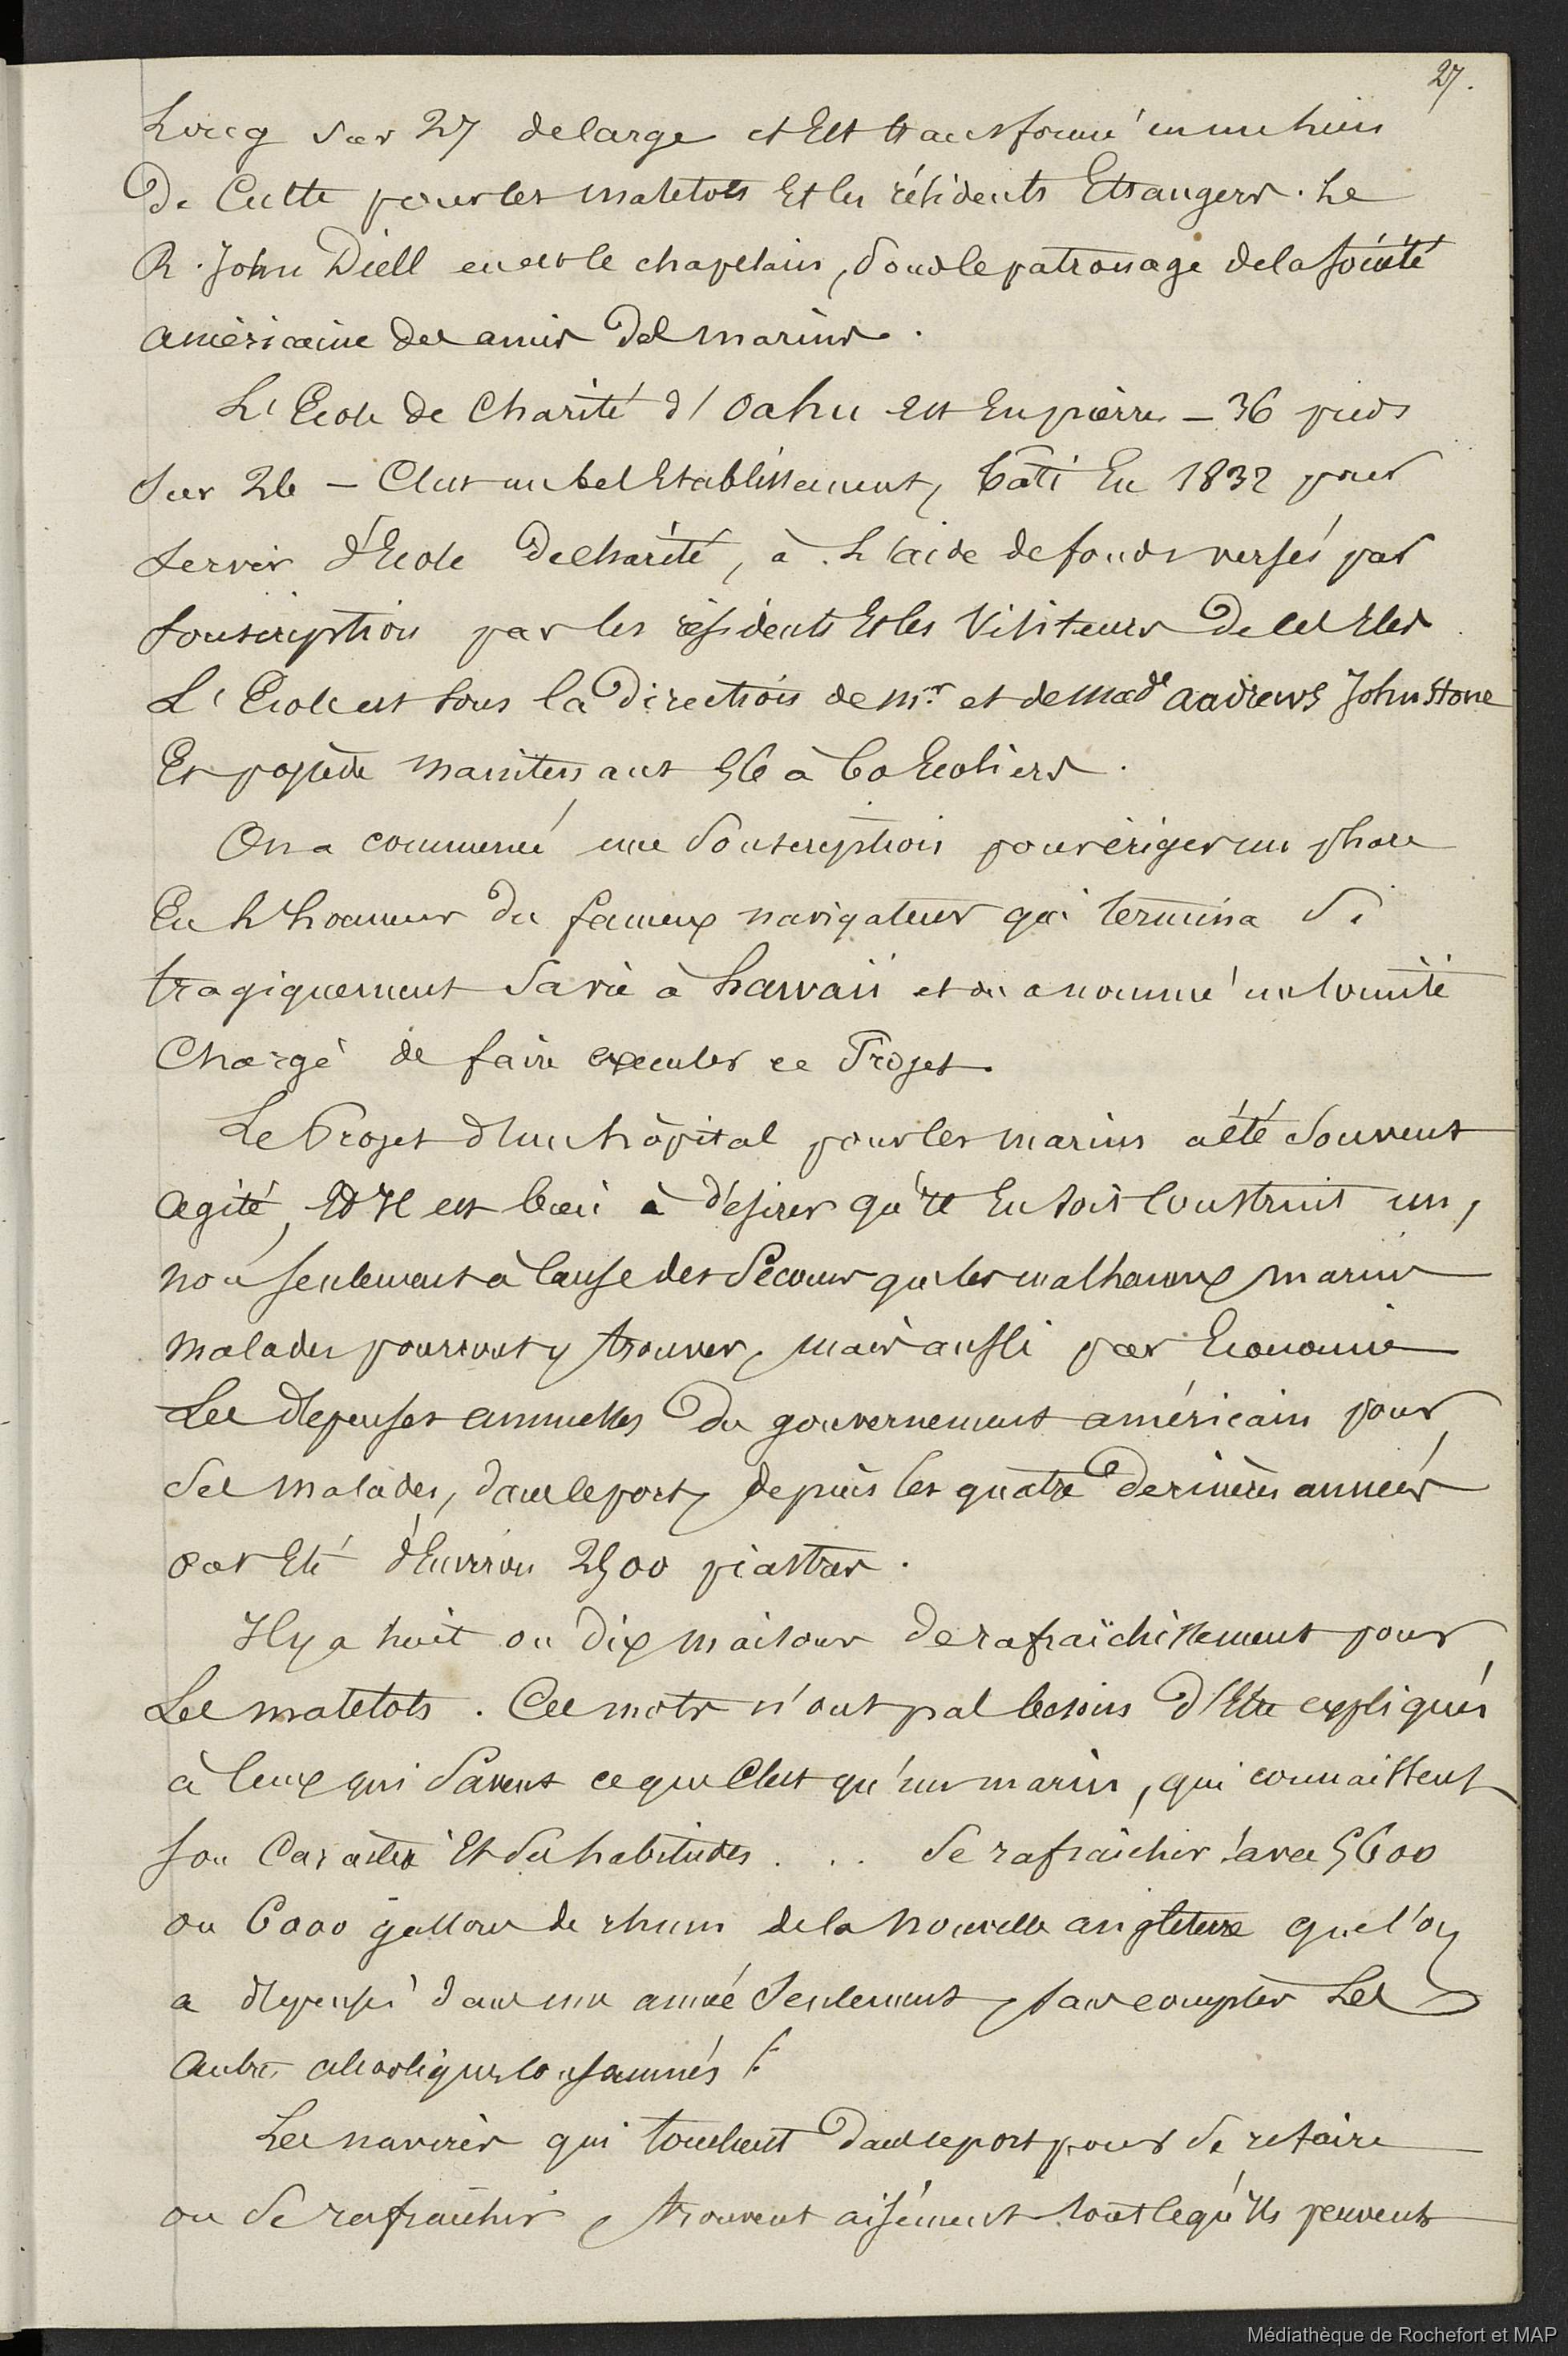 27.
Long sur 27 de large et Est transformé en un lieu
De Culte pour les matelots Et les résidents Etrangers. Le
R. John Diell en est le chapelain, sous le patronage de la société
américaine des amis des marins.
L'Ecole de Charité d'Oahu est En pierre – 36 pieds
sur 26 – C'est un bel Etablissement, bâti En 1832 pour
servir d'Ecole de charité, à l'aide de fonds versés par
souscription par les résidents Et les Visiteurs De ces Iles
L'Ecole est sous la Direction de Mr. et de Made Andrews Johnstone
Et possède maintenant 56 à 60 Ecoliers.
On a commencé une souscription pour ériger un phare
En l'honneur du fameux navigateur qui termina si
tragiquement sa vie à hawaii et on a nommé un Comité
Chargé de faire executer ce Projet.
Le Projet d'un hôpital pour les marins a été souvent
agité, Et Il est bien à désirer qu'il En soit Construit un,
non seulement à Cause des secours que les malheureux marins
malades pourront y trouver, mais aussi par Economie
Les dépenses annuelles Du gouvernement américain pour
ses malades, dans le port, depuis les quatre Dernières années
ont Eté d'Environ 2500 piastres.
Il y a huit ou Dix maisons De rafraîchissement pour
Les matelots. Ces mots n'ont pas besoins D'Etre expliqués
à Ceux qui savent ce que C'est qu'un marin, qui connaissent
son Caractère Et ses habitudes . . . Se rafraîchir ! avec 5600
ou 6000 gallons de rhum de la nouvelle angleterre que l'on
a dépensés dans une année seulement, sans compter Les
autres alcooliques consommés !
Les navires qui touchent Dans ce port pour se refaire
ou se rafraîchir, trouvent aisément tout ce qu'ils peuvent
Médiathèque de Rochefort et MAP